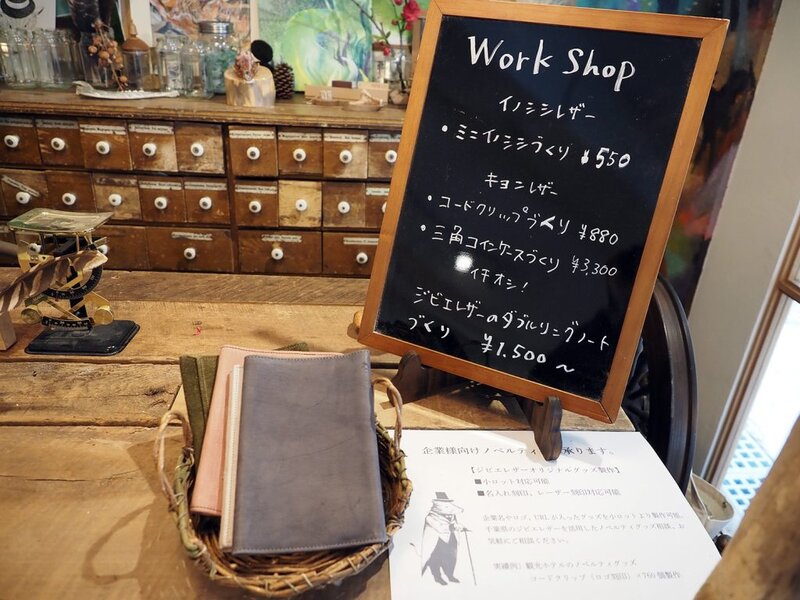 Work Shop
イノシシレザー
・ミニイノシシづくり ¥550
キョンレザー
・コードクリップづくり ¥880
・三角コインケースづくり ¥3,300
イチオシ!
ジビエレザーのダブルリングノート
づくり ¥1,500〜
企業様向けノベルティ 承ります。
【ジビエレザーオリジナルグッズ製作】
■小ロット対応可能
■名入れ刻印、レーザー刻印対応可能
企業名やロゴ、URLが入ったグッズを小ロットより製作可能。
千葉県のジビエレザーを活用したノベルティグッズ相談、お
気軽にご相談ください。
実績例)観光ホテルのノベルティグッズ
コードクリップ(ロゴ刻印)×760個製作